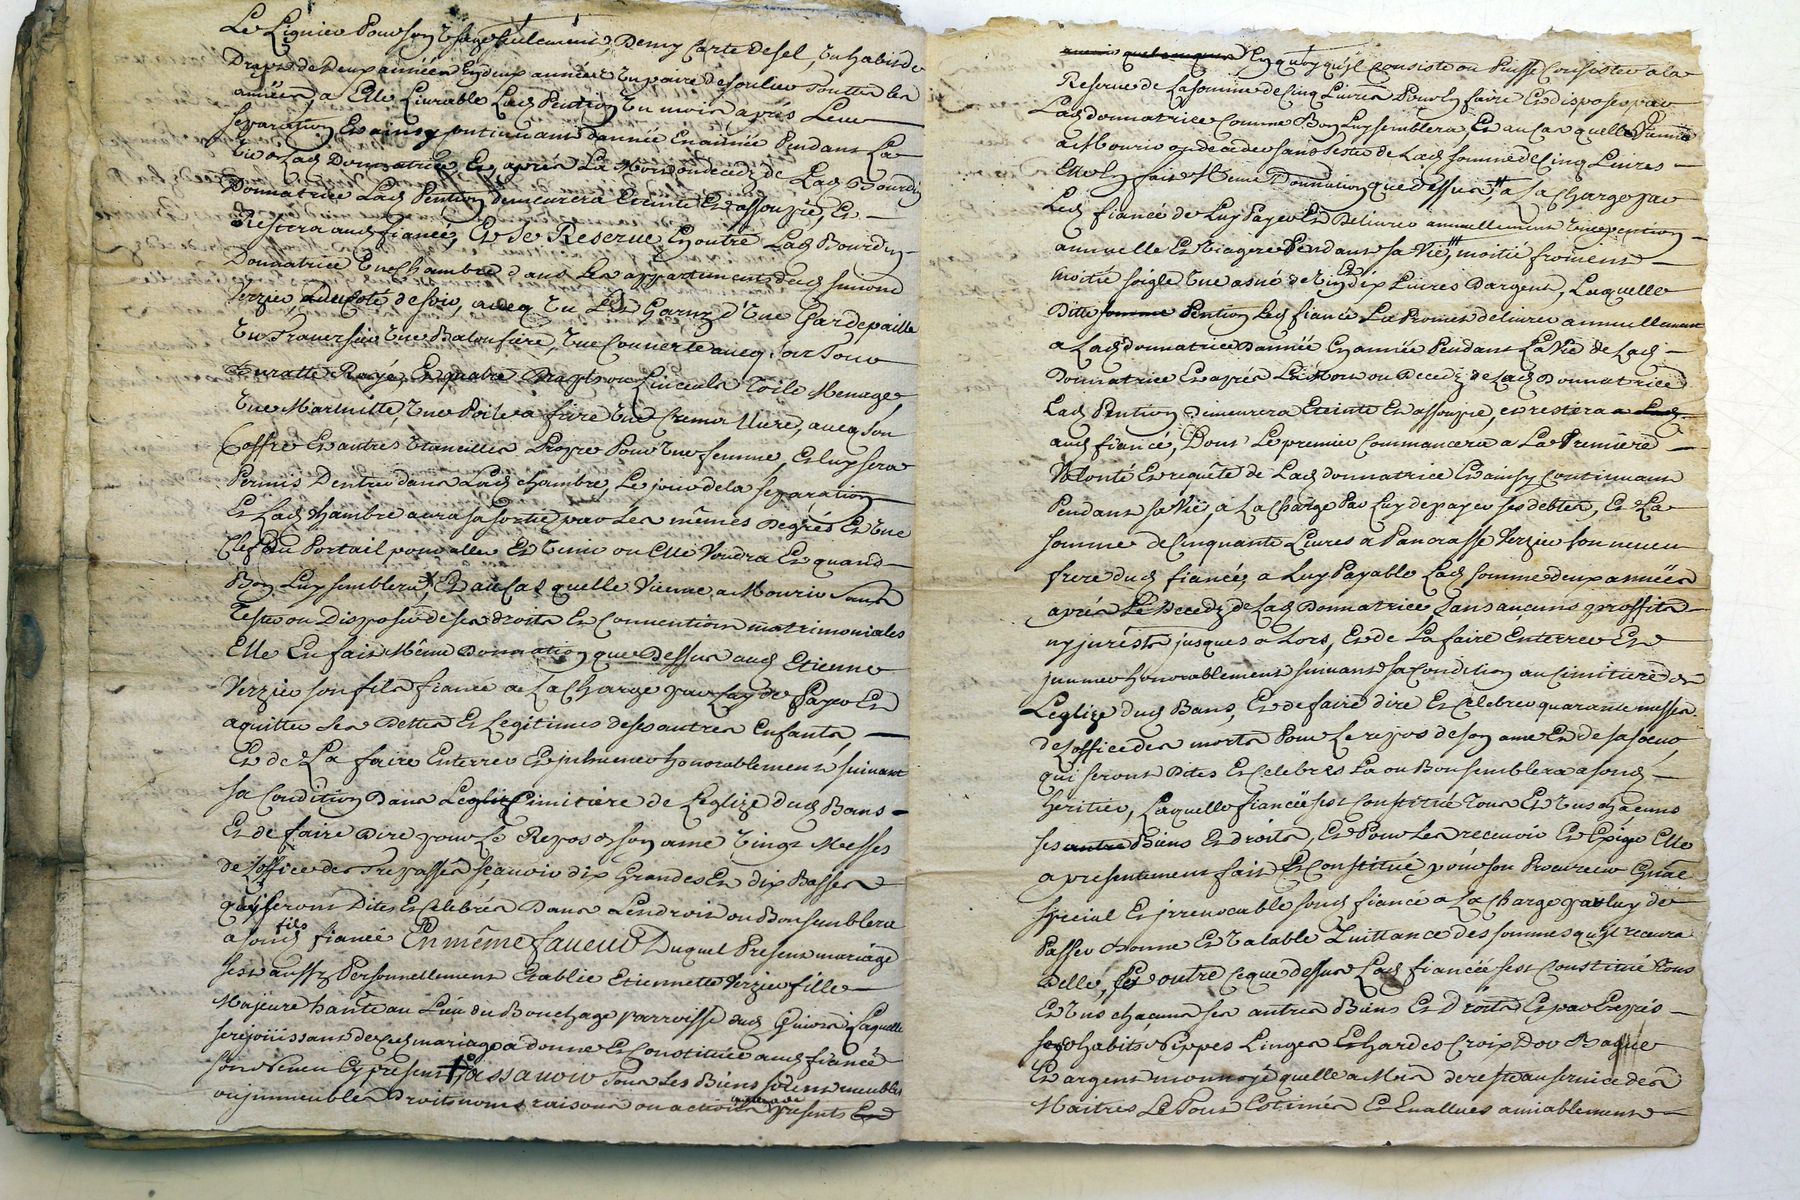 Le Lignier Pour son Usage seulement, Demy Carte de sel, Un habit de
Drap de Deux années En deux années Un paire de soulier Toutes les
années, a Elle Livrable Lad Pention Un mois après Leur
separation Et ainsy continuant d'année En année Pendant La
Vie a Lad Donnatrice Et, après La Mort ou décedz de Lad Bourdin
Donnatrice Lad Pention demeurera Eteinte Et assoupie, Et
Restera aud fiancé, Et Se Reserve En outre Lad Bourdin
Donnatrice Une Chambre dans Les appartements dud simond
Verzier, du coté de soir, avecq Un Lit Garny d'Une Gardepaille
Un Traversier Une Baloufiere, Une Couverte avecq son Tour
Buratte Rayé, Et quatre Draps ou Linceuls Toile Menage,
Une Marmitte, Une Poile a frire Une Cremolliere, avecq son
Coffre Et autres Utancilles Propre Pour Une femme, Et luy sera
Permis D'entrer dans Lad chambre, Le jour de la separation
Et Lad Chambre aura sa sortie par Les mêmes Degrés Et Une
Clef du Portail pour aller Et Venir ou Elle Voudra Et quand
Bon Luy semblera, Et au Cas quelle Vienne a Mourir Sans
Tester ou Disposer de ses droits Et Conventions matrimoniales
Elle En fait Même Donnation que Dessus aud Etienne
Verzier son fils fiancé a La Charge par Luy de Payer Et
aquitter Ses Dettes Et Legitimes de ses autres Enfants,
Et de La faire Enterrer Et inhumer honorablement suivant
sa Condition Dans Leglize Cimitiere de Leglize dud Bans
Et de faire Dire pour Le Repos de son ame Vingt Messes
de Loffice des Trepassés sçavoir dix Grandes Et dix Basses
qui seront Dites Et Celebrés Dans Lendroit ou Bon semblera
a sond fils fiancé En même faveur Duquel Present mariage
s'est aussy Personnellement Etablie Etiennette Verzier fille
Majeure hante au Lieu du Bouchage parroisse dud Givors, Laquelle
se rejouissant de ced mariage a donné Et Constitué aud fiancé
son Neveu Cy present + Sassavoir Tous Les Biens soient meubles
ou immeubles Droits noms raisons ou actions presents Et
Enquoy qu'ils Consiste ou Puisse Consister a la
Reserve de La somme de Cinq Livres Pour En faire Et disposer par
Lad donnatrice Comme Bon Luy semblera Et au Cas quelle Vienne
a Mourir ou deceder sans Tester de Lad somme de Cinq Livres
Elle En fait Même Donnation que dessus, a La Charge par
Led fiancé de Luy Payer Et Delivrer annuellement Une pention
annuelle Et Viagere Pendant sa Vie, moitié froment
moitié soigle Une asné de Vin Et dix Livres D'argent, Laquelle
Ditte somme Pention Led fiancé La Promet delivrer annuellement
a Lad donnatrice D'année En année Pendant La Vie de Lad
Donnatrice Et après La Mort ou Decedz de Lad Donnatrice
Lad Pention demeurera Eteinte Et assoupie, et restera a Lad
aud fiancé, Dont Le premier Commancera a La Première
Volonté Et requête de Lad donnatrice Et ainsy Continuant
Pendant sa Vie, a La Charge Par Luy de payer ses debtes, Et La
somme de Cinquante Livres a Pancrasse Verzier son neveu
frere dud fiancé, a Luy Payable Lad somme deux années
après Le Decedz de Lad Donnatrice Sans aucuns proffits
ny jurests jusques a Lors, Et de La faire Enterrer Et
inhumer honorablement suivant sa Condition au Cimitiere de
Leglize dud Bans, Et de faire dire Et Celebrer quarante messes
de Loffice des morts Pour Le repos de son ame Et de sa soeur,
qui seront Dites Et Celebrés La ou Bon semblera a sond
heritier, Laquelle fiancée s'est Constitué Tous Et Uns chacuns
ses autre Biens Et droits, Et Pour Les recevoir Et Exiger Elle
a presentement fait Et Constitué pour son Procureur Gnal
special Et irrevocable sond fiancé a La Charge par luy de
Passer Bonne Et Valable Quittance des sommes qu'il recevra
delle, Et outre Ce que dessus Lad fiancée s'est Constitué Tous
Et Uns chacuns ses autres Biens Et Droits Et par Exprés
ses habits Nippes Linges Et hardes Croix D'or Bague
Et argent monnoyé quelle a Mis de reste au service des
Maitres Le Tout Estimés Et Evallués amiablement